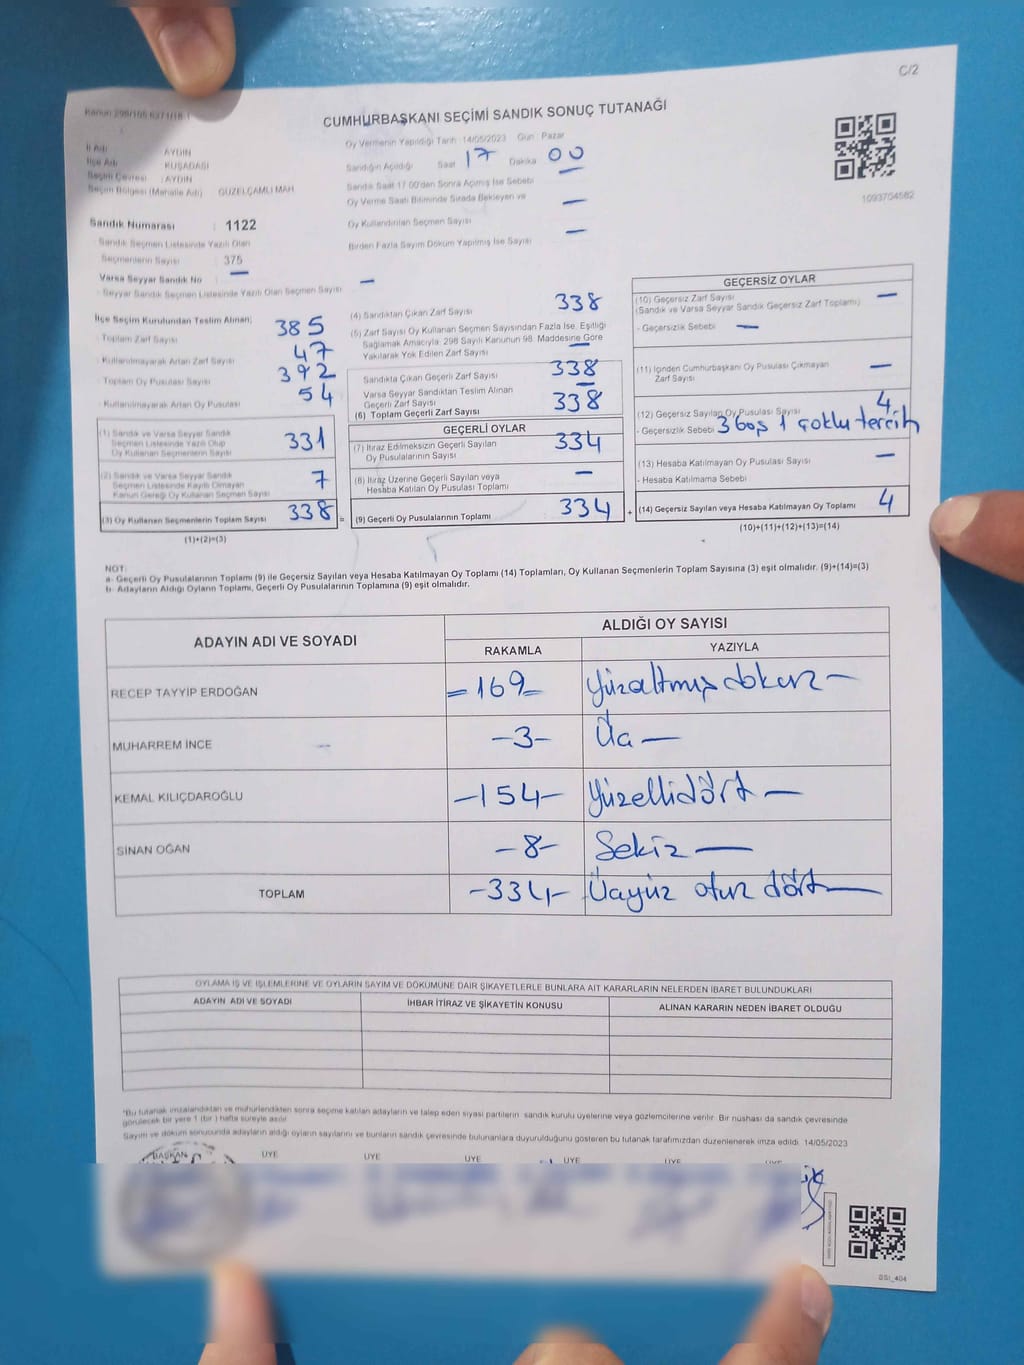 C/2
Kanun 298/105 6371/16-1
CUMHURBAŞKANI SEÇİMİ SANDIK SONUÇ TUTANAĞI
1093704582
İl Adı : AYDIN
İlçe Adı : KUŞADASI
Seçim Çevresi : AYDIN
Seçim Bölgesi (Mahalle Adı) : GÜZELÇAMLI MAH
Oy Vermenin Yapıldığı Tarih : 14/05/2023 Gün : Pazar
Sandığın Açıldığı Saat 17 Dakika 00
Sandık Saat 17.00'den Sonra Açılmış İse Sebebi —
Oy Verme Saati Bitiminde Sırada Bekleyen ve
Oy Kullandırılan Seçmen Sayısı —
Birden Fazla Sayım Döküm Yapılmış İse Sayısı —
Sandık Numarası : 1122
Sandık Seçmen Listesinde Yazılı Olan
Seçmenlerin Sayısı : 375
Varsa Seyyar Sandık No : —
- Seyyar Sandık Seçmen Listesinde Yazılı Olan Seçmen Sayısı : —
İlçe Seçim Kurulundan Teslim Alınan;
- Toplam Zarf Sayısı : 385
- Kullanılmayarak Artan Zarf Sayısı : 47
- Toplam Oy Pusulası Sayısı : 392
- Kullanılmayarak Artan Oy Pusulası : 54
(1) Sandık ve Varsa Seyyar Sandık
Seçmen Listesinde Yazılı Olup
Oy Kullanan Seçmenlerin Sayısı 331
(2) Sandık ve Varsa Seyyar Sandık
Seçmen Listesinde Kayıtlı Olmayan
Kanun Gereği Oy Kullanan Seçmen Sayısı 7
(3) Oy Kullanan Seçmenlerin Toplam Sayısı 338 =
(1)+(2)=(3)
(4) Sandıktan Çıkan Zarf Sayısı 338
(5) Zarf Sayısı Oy Kullanan Seçmen Sayısından Fazla İse, Eşitliği
Sağlamak Amacıyla, 298 Sayılı Kanunun 98. Maddesine Göre
Yakılarak Yok Edilen Zarf Sayısı —
Sandıkta Çıkan Geçerli Zarf Sayısı 338
Varsa Seyyar Sandıktan Teslim Alınan
Geçerli Zarf Sayısı —
(6) Toplam Geçerli Zarf Sayısı 338
GEÇERLİ OYLAR
(7) İtiraz Edilmeksizin Geçerli Sayılan
Oy Pusulalarının Sayısı 334
(8) İtiraz Üzerine Geçerli Sayılan veya
Hesaba Katılan Oy Pusulası Toplamı —
(9) Geçerli Oy Pusulalarının Toplamı 334 +
GEÇERSİZ OYLAR
(10) Geçersiz Zarf Sayısı —
(Sandık ve Varsa Seyyar Sandık Geçersiz Zarf Toplamı)
- Geçersizlik Sebebi : —
(11) İçinden Cumhurbaşkanı Oy Pusulası Çıkmayan
Zarf Sayısı —
(12) Geçersiz Sayılan Oy Pusulası Sayısı 4
- Geçersizlik Sebebi 3 boş 1 çoklu tercih
(13) Hesaba Katılmayan Oy Pusulası Sayısı —
- Hesaba Katılmama Sebebi
(14) Geçersiz Sayılan veya Hesaba Katılmayan Oy Toplamı 4
(10)+(11)+(12)+(13)=(14)
NOT:
a- Geçerli Oy Pusulalarının Toplamı (9) ile Geçersiz Sayılan veya Hesaba Katılmayan Oy Toplamı (14) Toplamları, Oy Kullanan Seçmenlerin Toplam Sayısına (3) eşit olmalıdır. (9)+(14)=(3)
b- Adayların Aldığı Oyların Toplamı, Geçerli Oy Pusulalarının Toplamına (9) eşit olmalıdır.
ADAYIN ADI VE SOYADI
ALDIĞI OY SAYISI
RAKAMLA YAZIYLA
RECEP TAYYİP ERDOĞAN =169= Yüzaltmışdokuz—
MUHARREM İNCE -3- Üç—
KEMAL KILIÇDAROĞLU -154- Yüzellidört—
SİNAN OĞAN -8- Sekiz—
TOPLAM -334- Üçyüz otuz dört—
OYLAMA İŞ VE İŞLEMLERİNE VE OYLARIN SAYIM VE DÖKÜMÜNE DAİR ŞİKAYETLERLE BUNLARA AİT KARARLARIN NELERDEN İBARET BULUNDUKLARI
ADAYIN ADI VE SOYADI İHBAR İTİRAZ VE ŞİKAYETİN KONUSU ALINAN KARARIN NEDEN İBARET OLDUĞU
*Bu tutanak imzalandıktan ve mühürlendikten sonra seçime katılan adayların ve talep eden siyasi partilerin sandık kurulu üyelerine veya gözlemcilerine verilir. Bir nüshası da sandık çevresinde
görülecek bir yere 1 (bir ) hafta süreyle asılır.
Sayım ve döküm sonucunda adayların aldığı oyların sayılarını ve bunların sandık çevresinde bulunanlara duyurulduğunu gösteren bu tutanak tarafımızdan düzenlenerek imza edildi. 14/05/2023
BAŞKAN ÜYE ÜYE ÜYE ÜYE ÜYE ÜYE
SSI_404